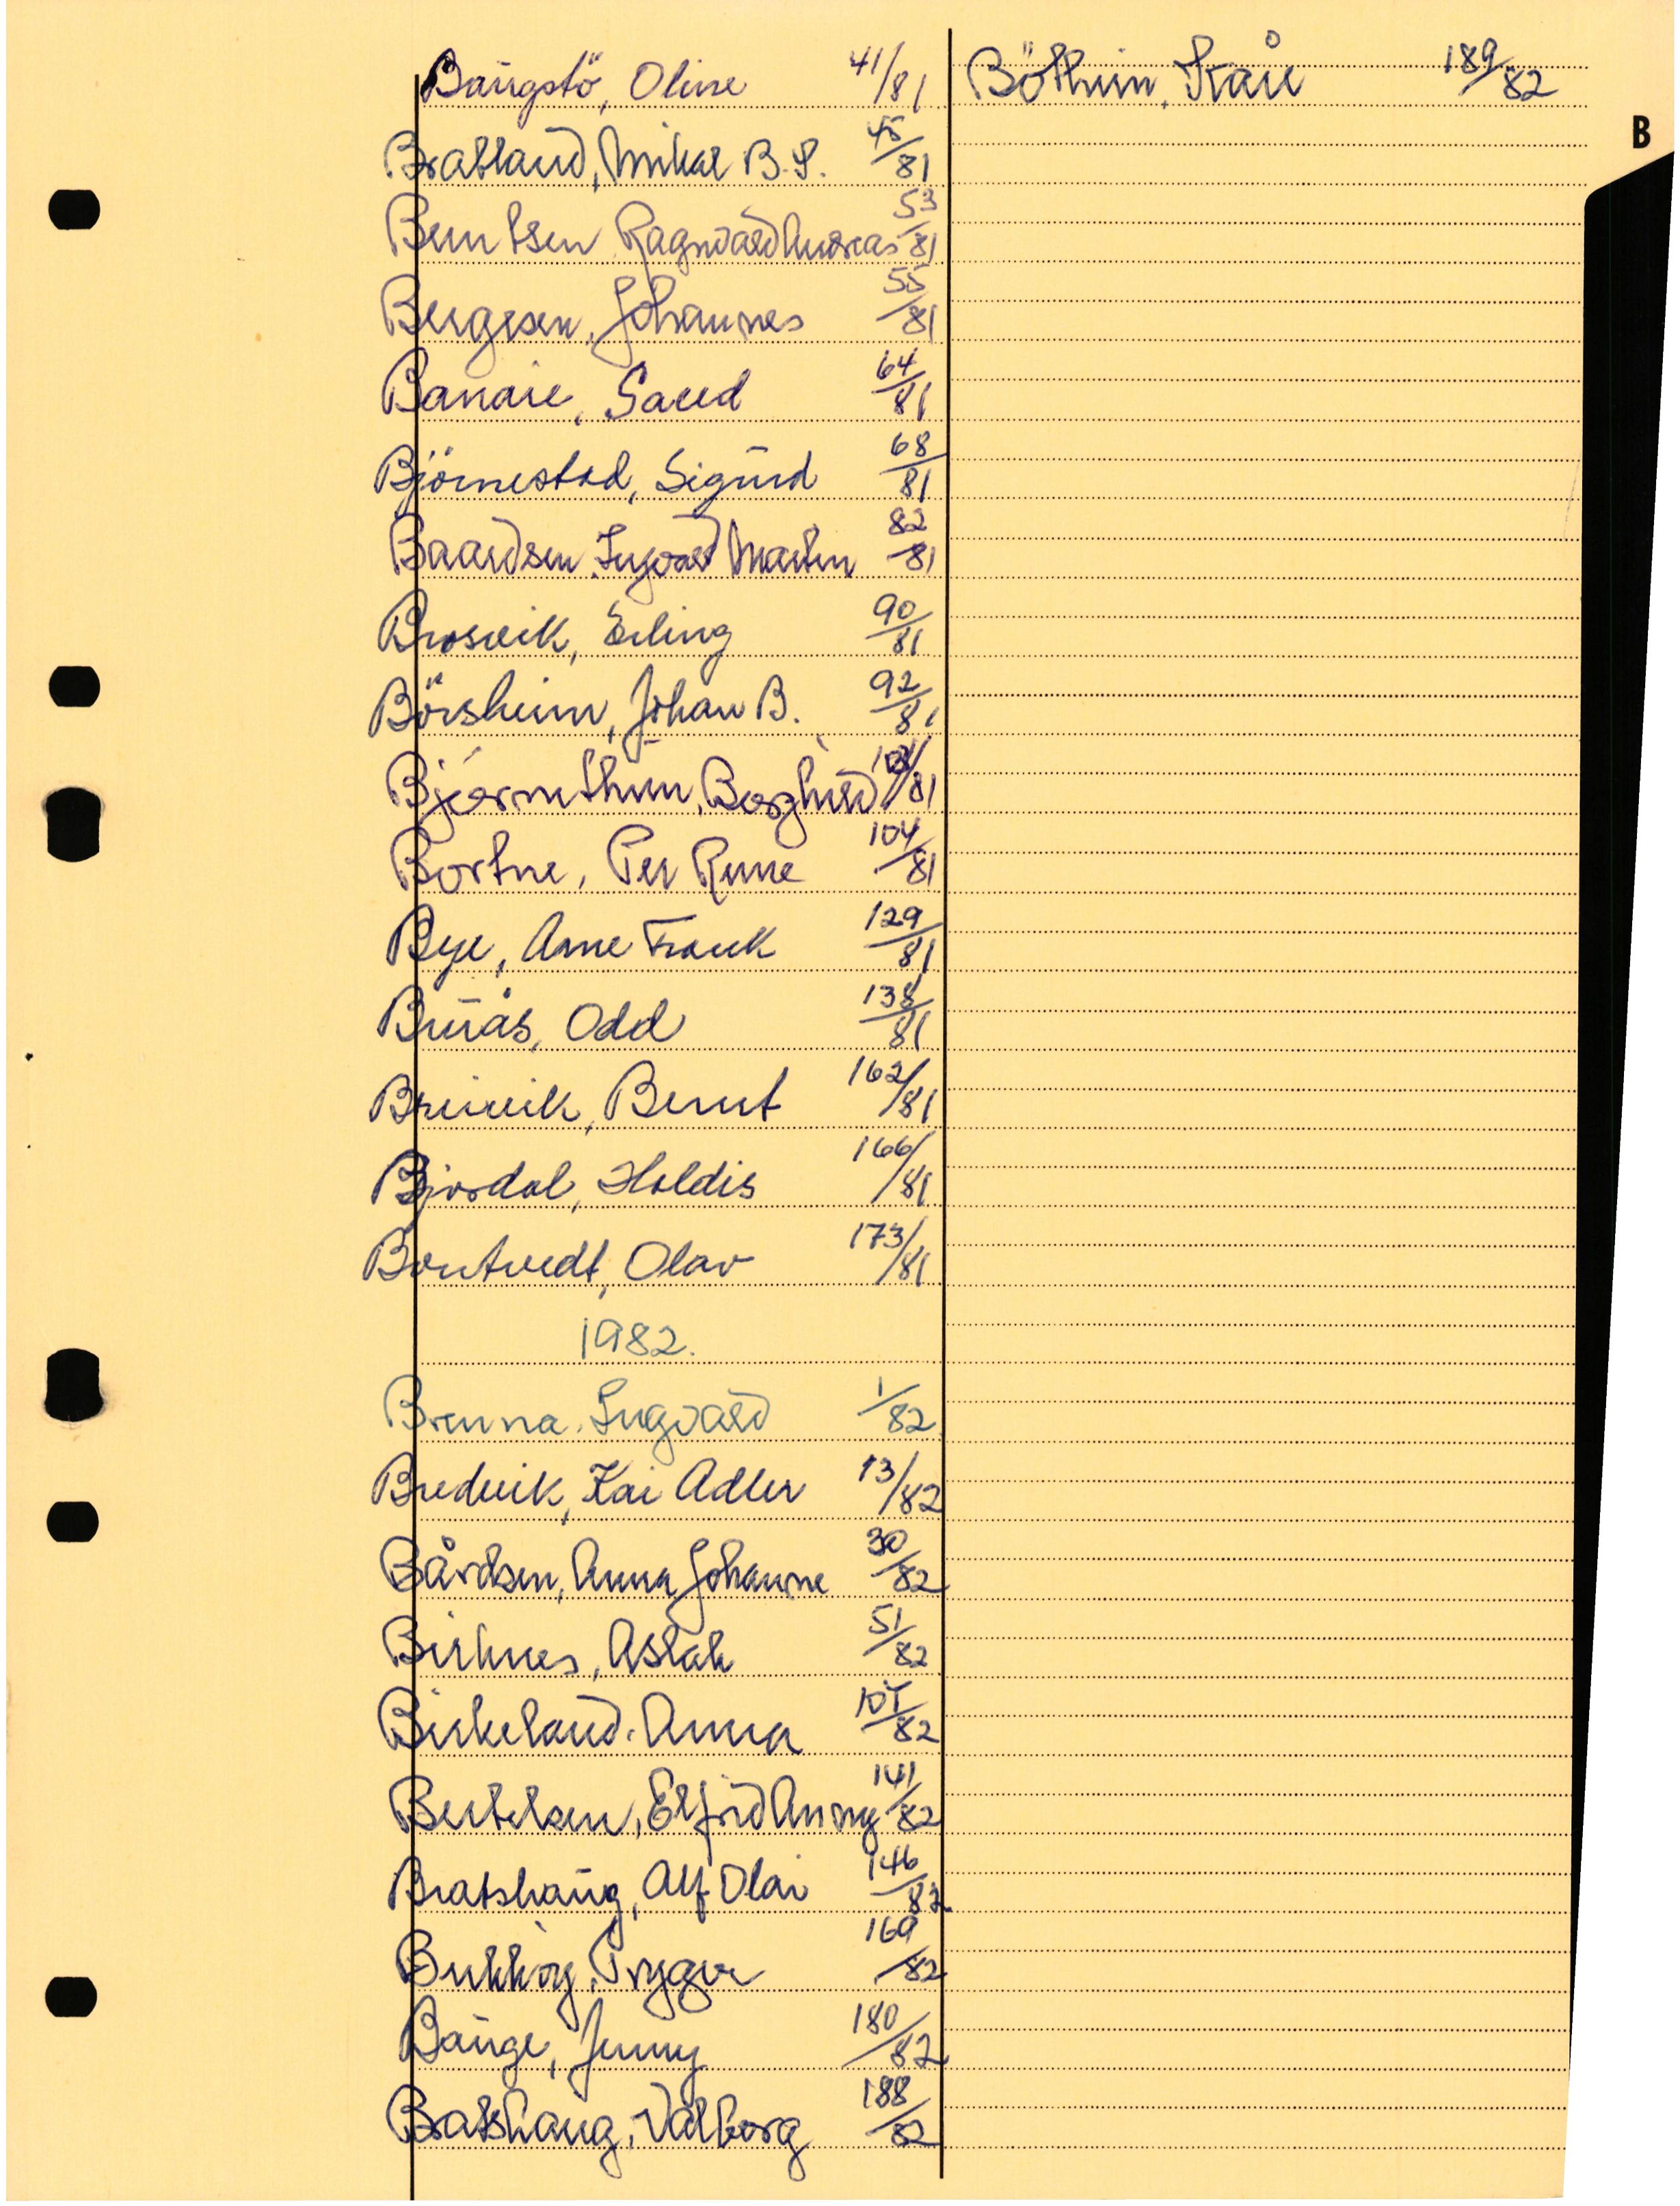 Baugstö, Oline 41/81
Bratland, Mikal B.S. 45/81
Berntsen Ragnvald Andreas 53/81
Bergesen, Johannes 55/81
Banaie, Saeed 64/81
Björnestad, Sigurd 68/81
Baardsen Ingvald Martin 82/81
Brosvik, Erling 90/81
Börsheim, Johan B. 92/81
Borghild /81
Bortne, Per Rune 104/81
Bye, Arne Frank 129/81
Buås, Odd 138/81
Breivik, Bernt 162/81
Bjordal, Haldis 166/81
Bontvedt, Olav 173/81
1982.
Brenna. Ingvald 1/82
Bredvik, Kai Adler 13/82
Bårdsen, Anna Johanne 30/82
Birknes, Aslak 51/82
Birkeland. Anna /82
Bertelsen, Elfrid Anny 141/82
Bratshaug, Alf Olai 146/82
Bukköy, Trygve 169/82
Bauge, Jenny 180/82
Bratshaug, Valborg 188/82
Böthun, Kåre 189/82
B